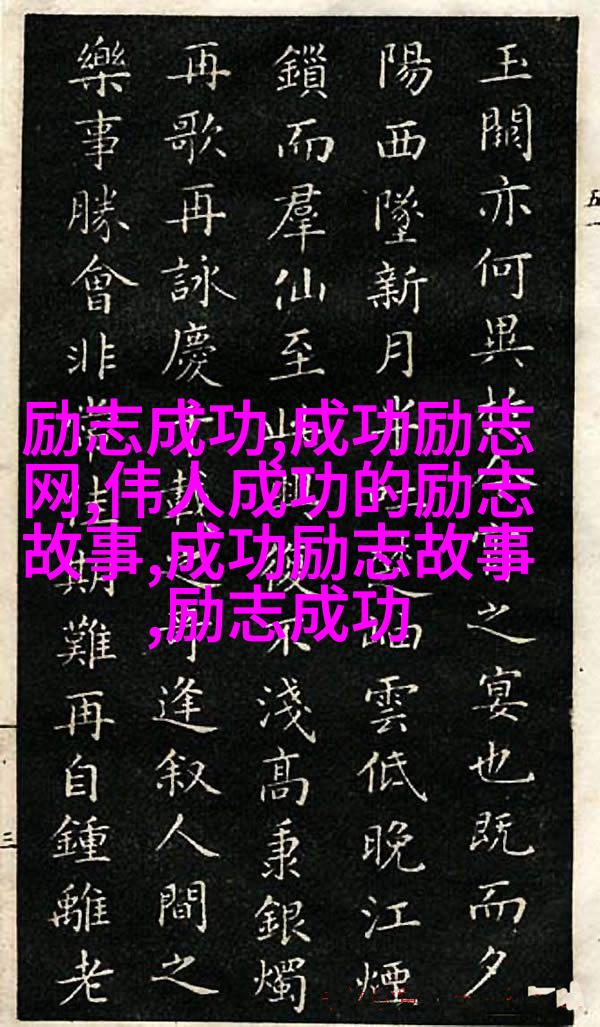 励志成功,成功励志
网,伟人成功的励志
故事,成功励志故事
,励志成功
玉闕亦何異今之宴也既而夕
陽西墜新月半岫雲低晚江煙
鎖而羣仙至此興復不淺高秉銀燭
再歌再詠慶載之逢叙人間之
樂事勝會非常佳期難再自鍾離老
五一
三